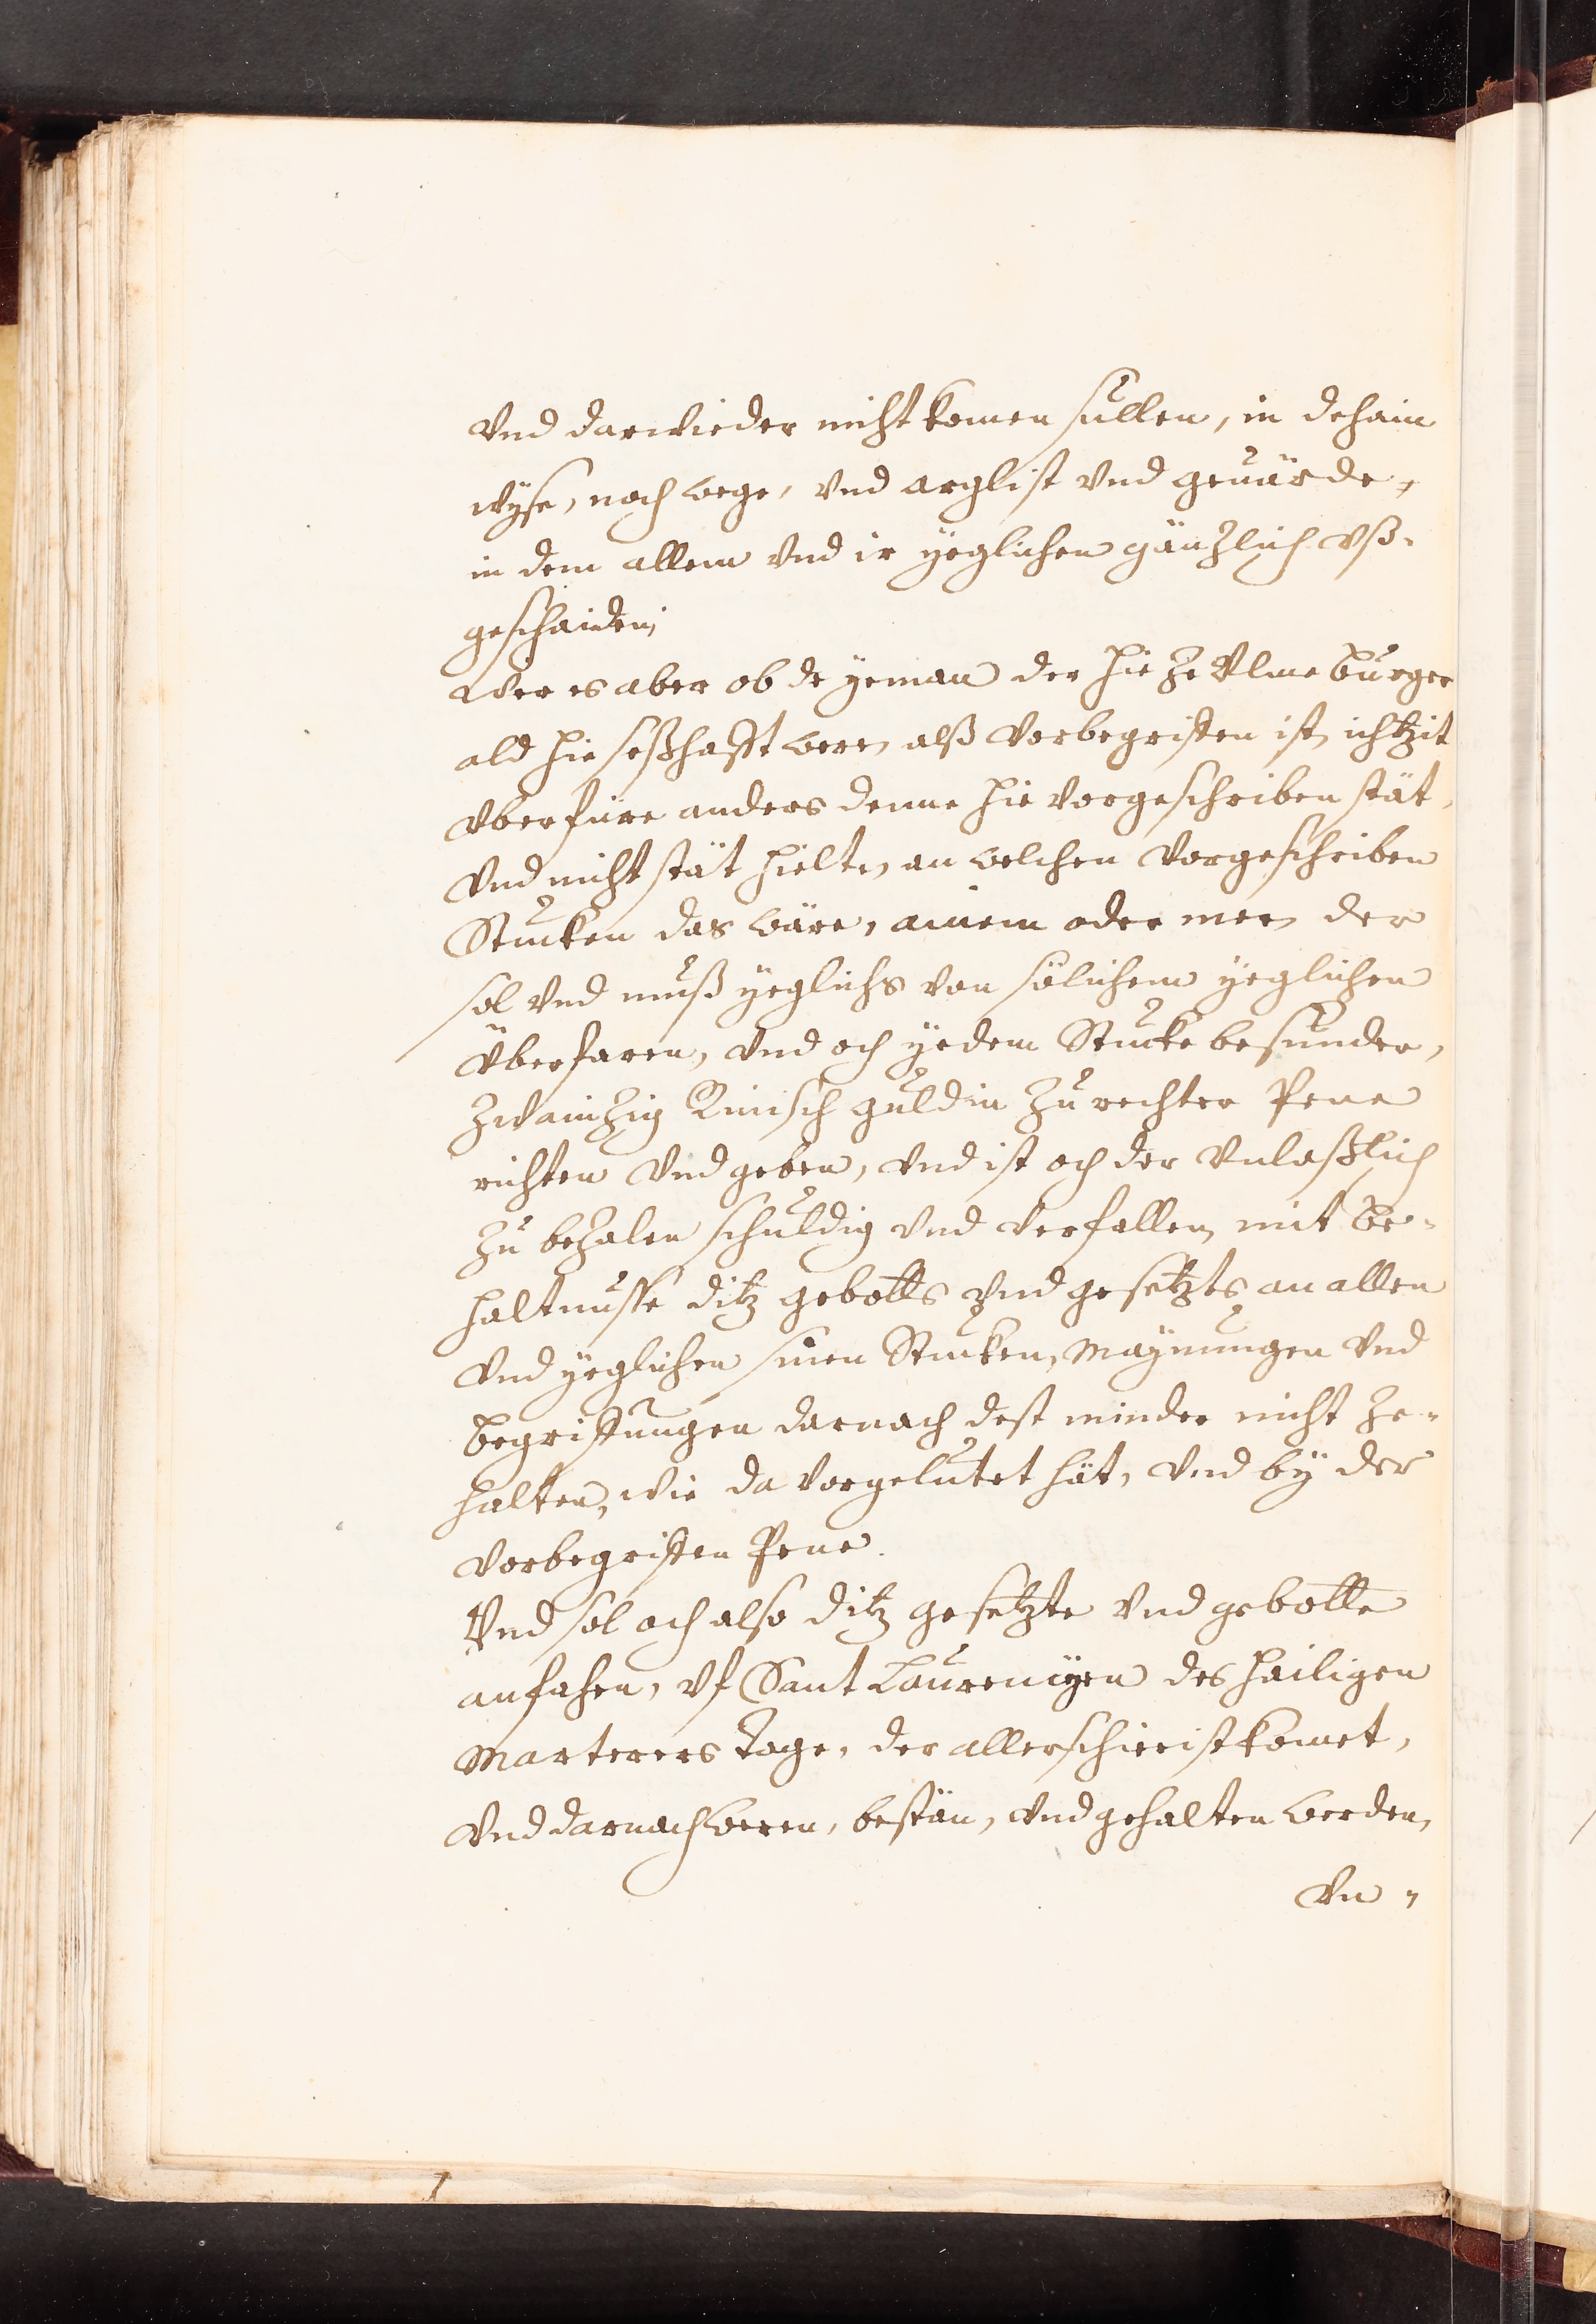 Vnd darwieder nicht komen sullen, in dehain
wyse, noch wege, vnd arglist vnd geuärde,
in dem allem vnd ir yeglichen gäntzlich vß-
geschaiden,
Wer es aber ob de yeman der hie ze Vlme burger
ald hie seßhafft were, alß vorbegriffen ist, ichtzit
vberfüre anders denne hie vorgeschriben stät,
Vnd nicht stät hielte, an welchen vorgeschriben
Stucken das wäre, ainem oder mer, der
sol vnd muß yeglichs von sölichem yeglichen
Überfaren, vnd och yedem Stucke besunder,
zwaintzig Rinisch guldin zu rechter Pene
richten vnd geben, vnd ist och der vnlaßlich
zu bezalen schuldig vnd verfallen, mit be-
haltnusse ditz gebotts vnd gesetzts, an allen
vnd yeglichen sinen Stucken, Maynungen vnd
begriffungen darnach dest minder nicht ze-
halten, wie da vorgelutet hät, vnd by der
vorbegriffen Pene.
Vnd sol och also ditz gesetzte vnd gebotte
anfahen, vf Sant Laurencyen des hailigen
Marterers Tage, der allerschierist komet,
vnd darnach weren, bestän, vnd gehalten werden,
Vn-